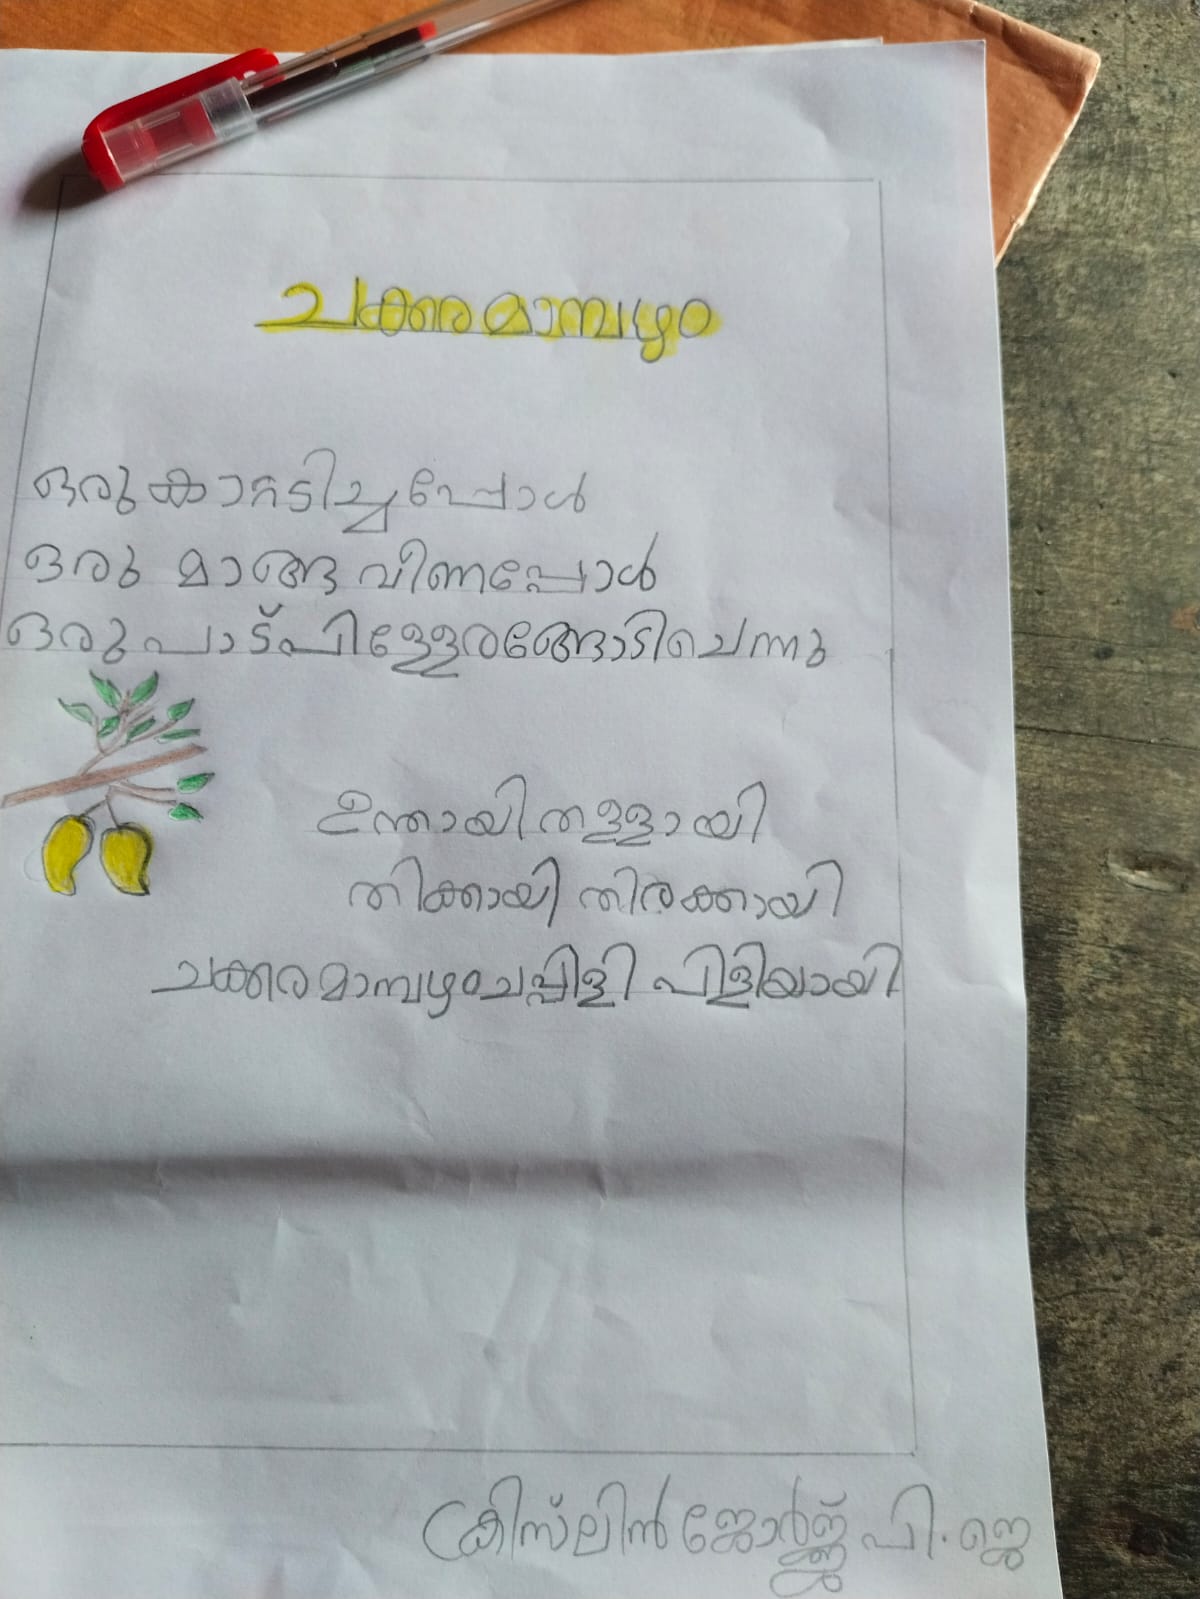 ചക്കരമാമ്പഴം
ഒരു കാറ്റടിച്ചപ്പോൾ
ഒരു മാങ്ങ വീണപ്പോൾ
ഒരുപാട് പിള്ളേരങ്ങോടിചെന്നു
ഉന്തായി തള്ളായി
തിക്കായി തിരക്കായി
ചക്കരമാമ്പഴംചപ്പിളി പിളിയായി
ക്രിസ്‌ലിൻ ജോർജ്ജ് പി. ജെ